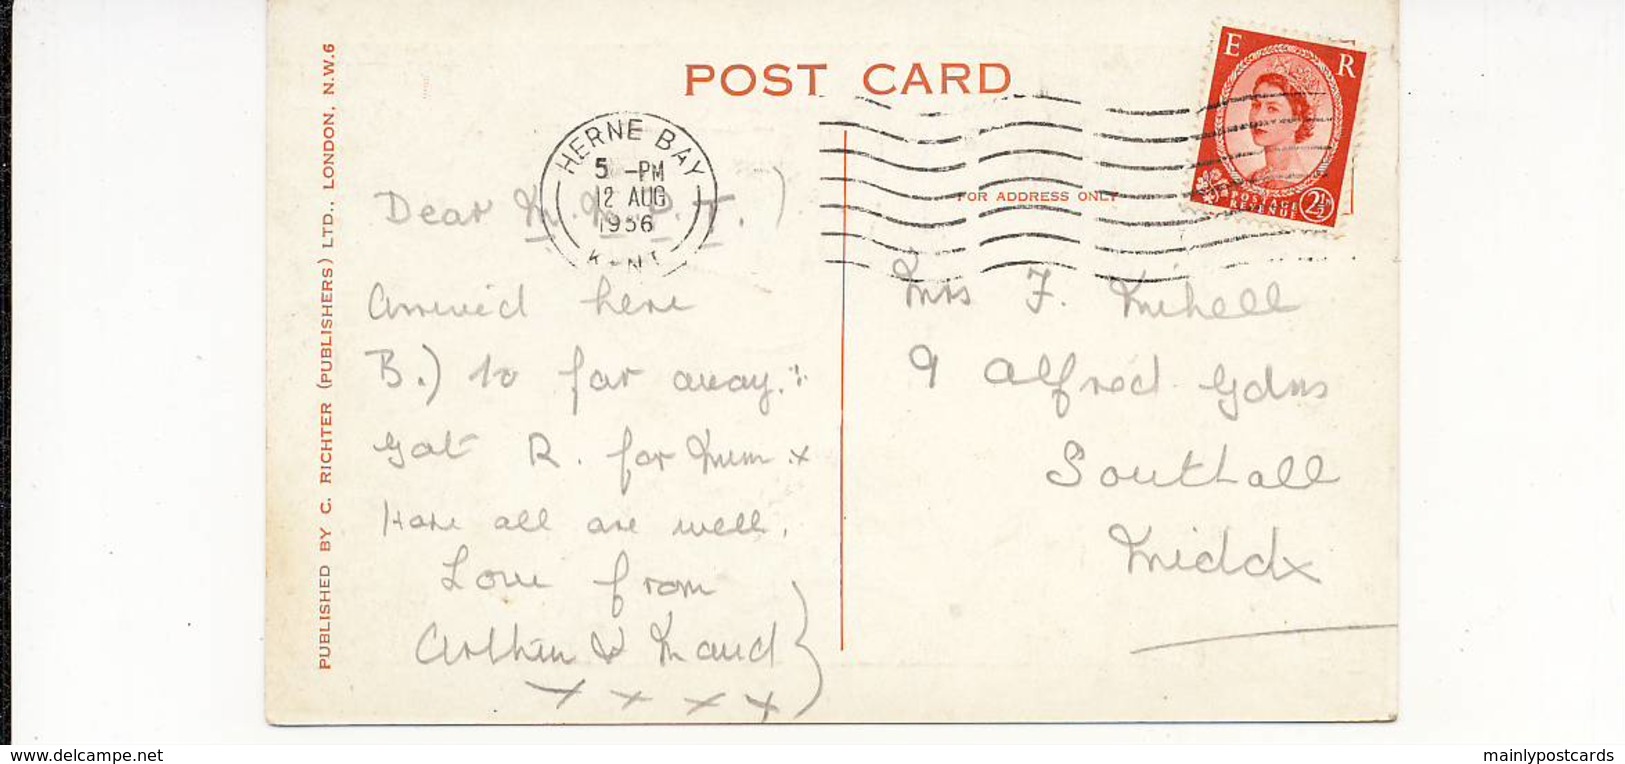 POST CARD
PUBLISHED BY C. RICHTER (PUBLISHERS) LTD., LONDON, N.W.6
HERNE BAY
5 -PM
12 AUG
1956
KENT
E R
POSTAGE
REVENUE
2½D
FOR ADDRESS ONLY
Dear M. M. P. T.)
arrived here
B.) 10 far away.
Got R. for Mum x
Hope all are well.
Love from
Arthur & Maud
x x x x
Mrs F. Mihell
9 Alfred Gdns
Southall
Middx
www.delcampe.net
mainlypostcards